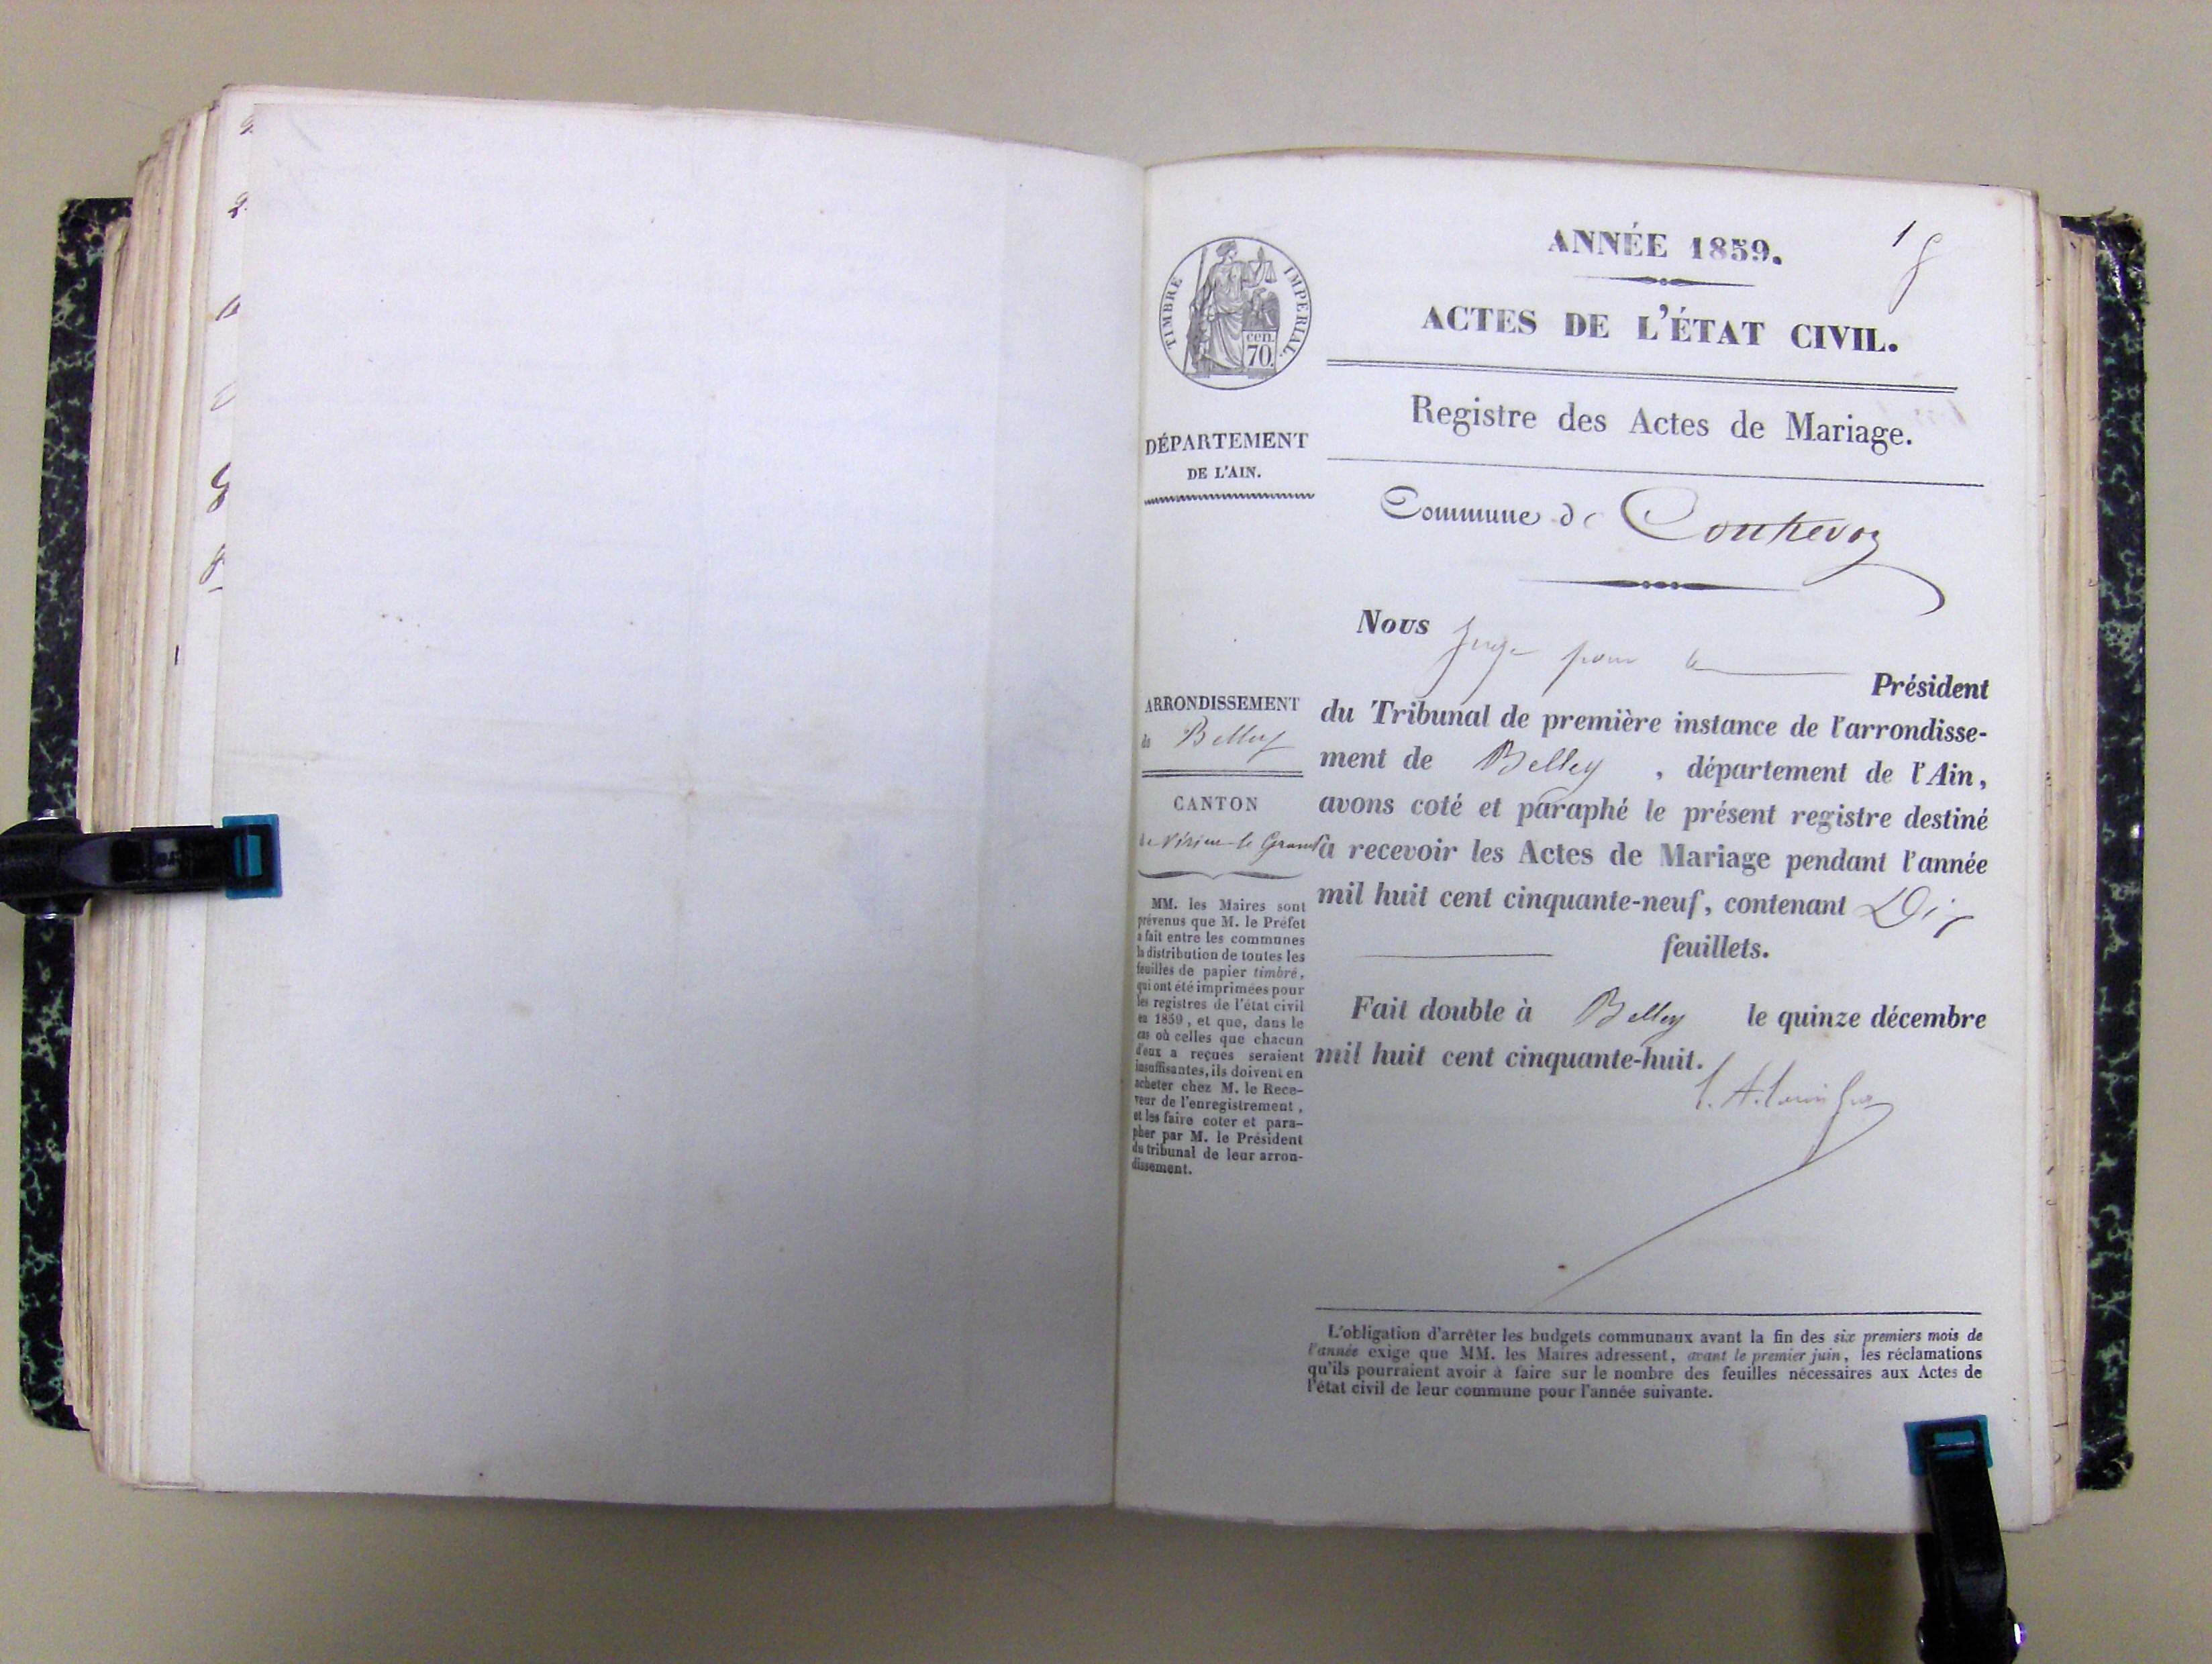 ANNÉE 1859.
1
ACTES DE L'ÉTAT CIVIL.
TIMBRE IMPERIAL.
cen.
70.
Registre des Actes de Mariage.
DÉPARTEMENT
DE L'AIN.
Commune de Contrevoz
Nous Juge pour le Président
du Tribunal de première instance de l'arrondisse-
ment de Belley, département de l'Ain,
avons coté et paraphé le présent registre destiné
à recevoir les Actes de Mariage pendant l'année
mil huit cent cinquante-neuf, contenant Dix
feuillets.
Fait double à Belley le quinze décembre
mil huit cent cinquante-huit.
ARRONDISSEMENT
de Belley
CANTON
de Virieu-le-Grand
MM. les Maires sont
prévenus que M. le Préfet
a fait entre les communes
la distribution de toutes les
feuilles de papier timbré,
qui ont été imprimées pour
les registres de l'état civil
en 1859, et que, dans le
cas où celles que chacun
d'eux a reçues seraient
insuffisantes, ils doivent en
acheter chez M. le Rece-
veur de l'enregistrement,
et les faire coter et para-
pher par M. le Président
du tribunal de leur arron-
dissement.
L'obligation d'arrêter les budgets communaux avant la fin des six premiers mois de
l'année exige que MM. les Maires adressent, avant le premier juin, les réclamations
qu'ils pourraient avoir à faire sur le nombre des feuilles nécessaires aux Actes de
l'état civil de leur commune pour l'année suivante.